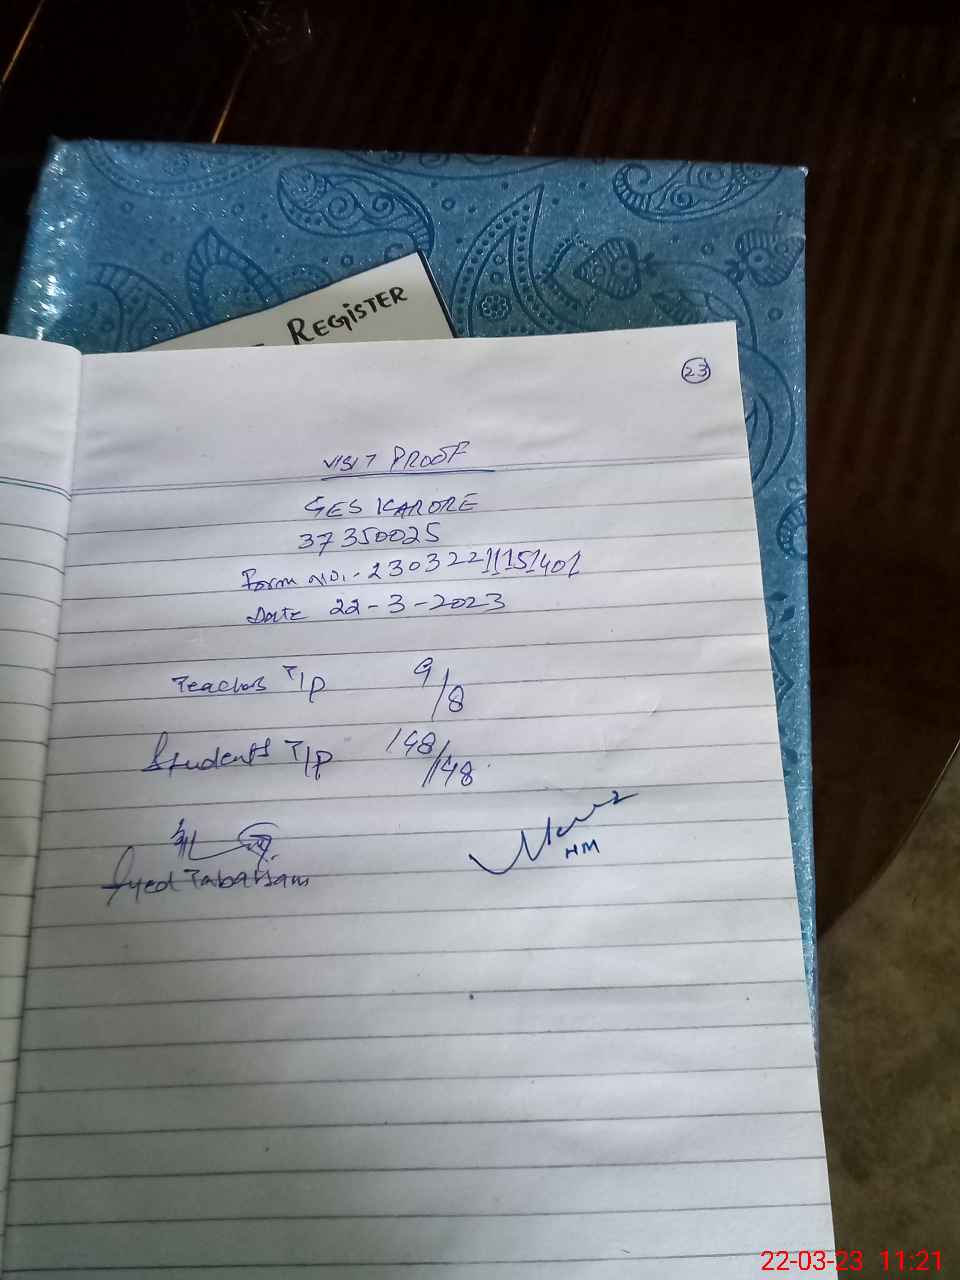 REGISTER
23
VISIT PROOF
GES KARORE
37350025
Form No:- 230322111151401
Date 22-3-2023
Teachers T/P 9/8
Students T/P 148/148
Syed Tabassam
HM
22-03-23 11:21